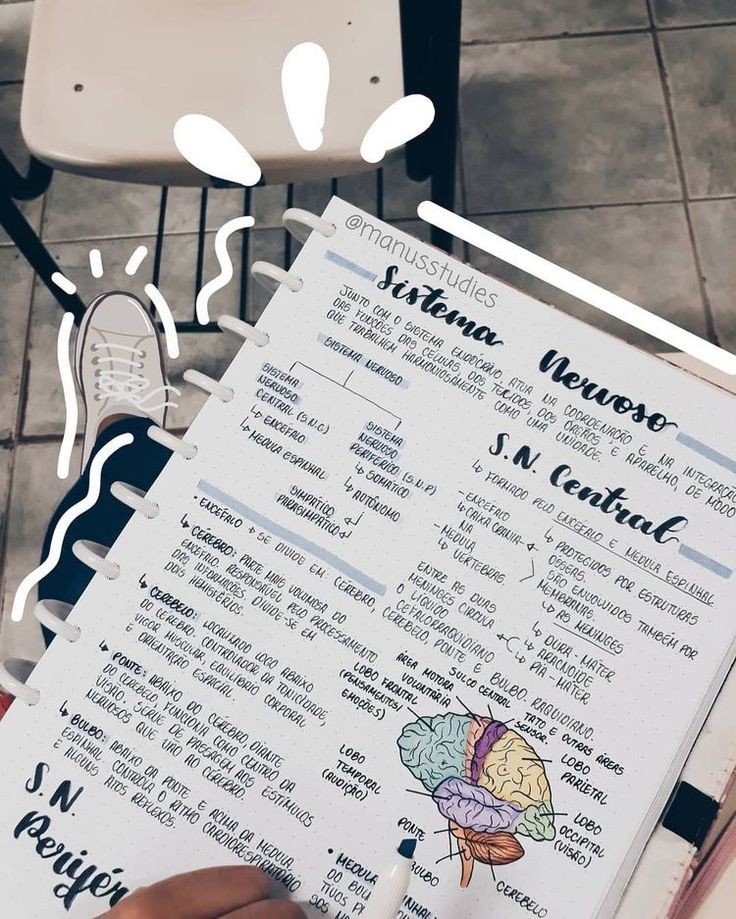 @manusstudies
Sistema Nervoso
JUNTO COM O SISTEMA ENDÓCRINO ATUA NA COORDENAÇÃO E NA INTEGRAÇÃO
DAS FUNÇÕES DAS CÉLULAS, DOS TECIDOS, DOS ÓRGÃOS E APARELHO, DE MODO
QUE TRABALHEM HARMONIOSAMENTE COMO UMA UNIDADE.
SISTEMA NERVOSO
SISTEMA
NERVOSO
CENTRAL (S.N.C)
↳ ENCÉFALO
↳ MEDULA ESPINHAL
SISTEMA
NERVOSO
PERIFÉRICO (S.N.P)
↳ SOMÁTICO
↳ AUTÔNOMO
SIMPÁTICO
PARASSIMPÁTICO
S.N. Central
↳ FORMADO PELO ENCÉFALO E MEDULA ESPINHAL
- ENCÉFALO
↳ CAIXA CRANIA-
NA
- MEDULA
↳ VERTEBRAS
↳ PROTEGIDOS POR ESTRUTURAS
ÓSSEAS.
↳ SÃO ENVOLVIDOS TAMBÉM POR
MEMBRANAS.
↳ AS MENINGES
↳ DURA-MATER
↳ ARACNOIDE
↳ PIA-MATER
ENTRE AS DUAS
MENINGES CIRCULA
O LÍQUIDO
CEFALORRAQUIDIANO
RAQUIDIANO.
• ENCÉFALO → SE DIVIDE EM: CÉREBRO, CEREBELO, PONTE E BULBO.
↳ CÉREBRO: PARTE MAIS VOLUMOSA DO
ENCÉFALO. RESPONSÁVEL PELO PROCESSAMENTO
DAS INFORMAÇÕES. DIVIDE-SE EM
DOIS HEMISFÉRIOS.
↳ CEREBELO: LOCALIZADO LOGO ABAIXO
DO CÉREBRO. CONTROLADOR DA TONICIDADE,
VIGOR MUSCULAR, EQUILÍBRIO CORPORAL
E ORIENTAÇÃO ESPACIAL.
↳ PONTE: ABAIXO DO CÉREBRO, DIANTE
DO CEREBELO, FUNCIONA COMO CENTRO DA
VISÃO, SERVE DE PASSAGEM AOS ESTÍMULOS
NERVOSOS QUE VÃO AO CÉREBRO.
↳ BULBO: ABAIXO DA PONTE E ACIMA DA MEDULA
ESPINHAL CONTROLA O RITMO CARDIORRESPIRATÓRIO
E ALGUNS ATOS REFLEXOS.
LOBO FRONTAL
(PENSAMENTOS/
EMOÇÕES)
ÁREA MOTORA
VOLUNTÁRIA
SULCO CENTRAL
TATO E OUTRAS ÁREAS
SENSOR.
LOBO
PARIETAL
LOBO
OCCIPITAL
(VISÃO)
LOBO
TEMPORAL
(AUDIÇÃO)
PONTE
BULBO
CEREBELO
S.N
Perifér
• MEDULA